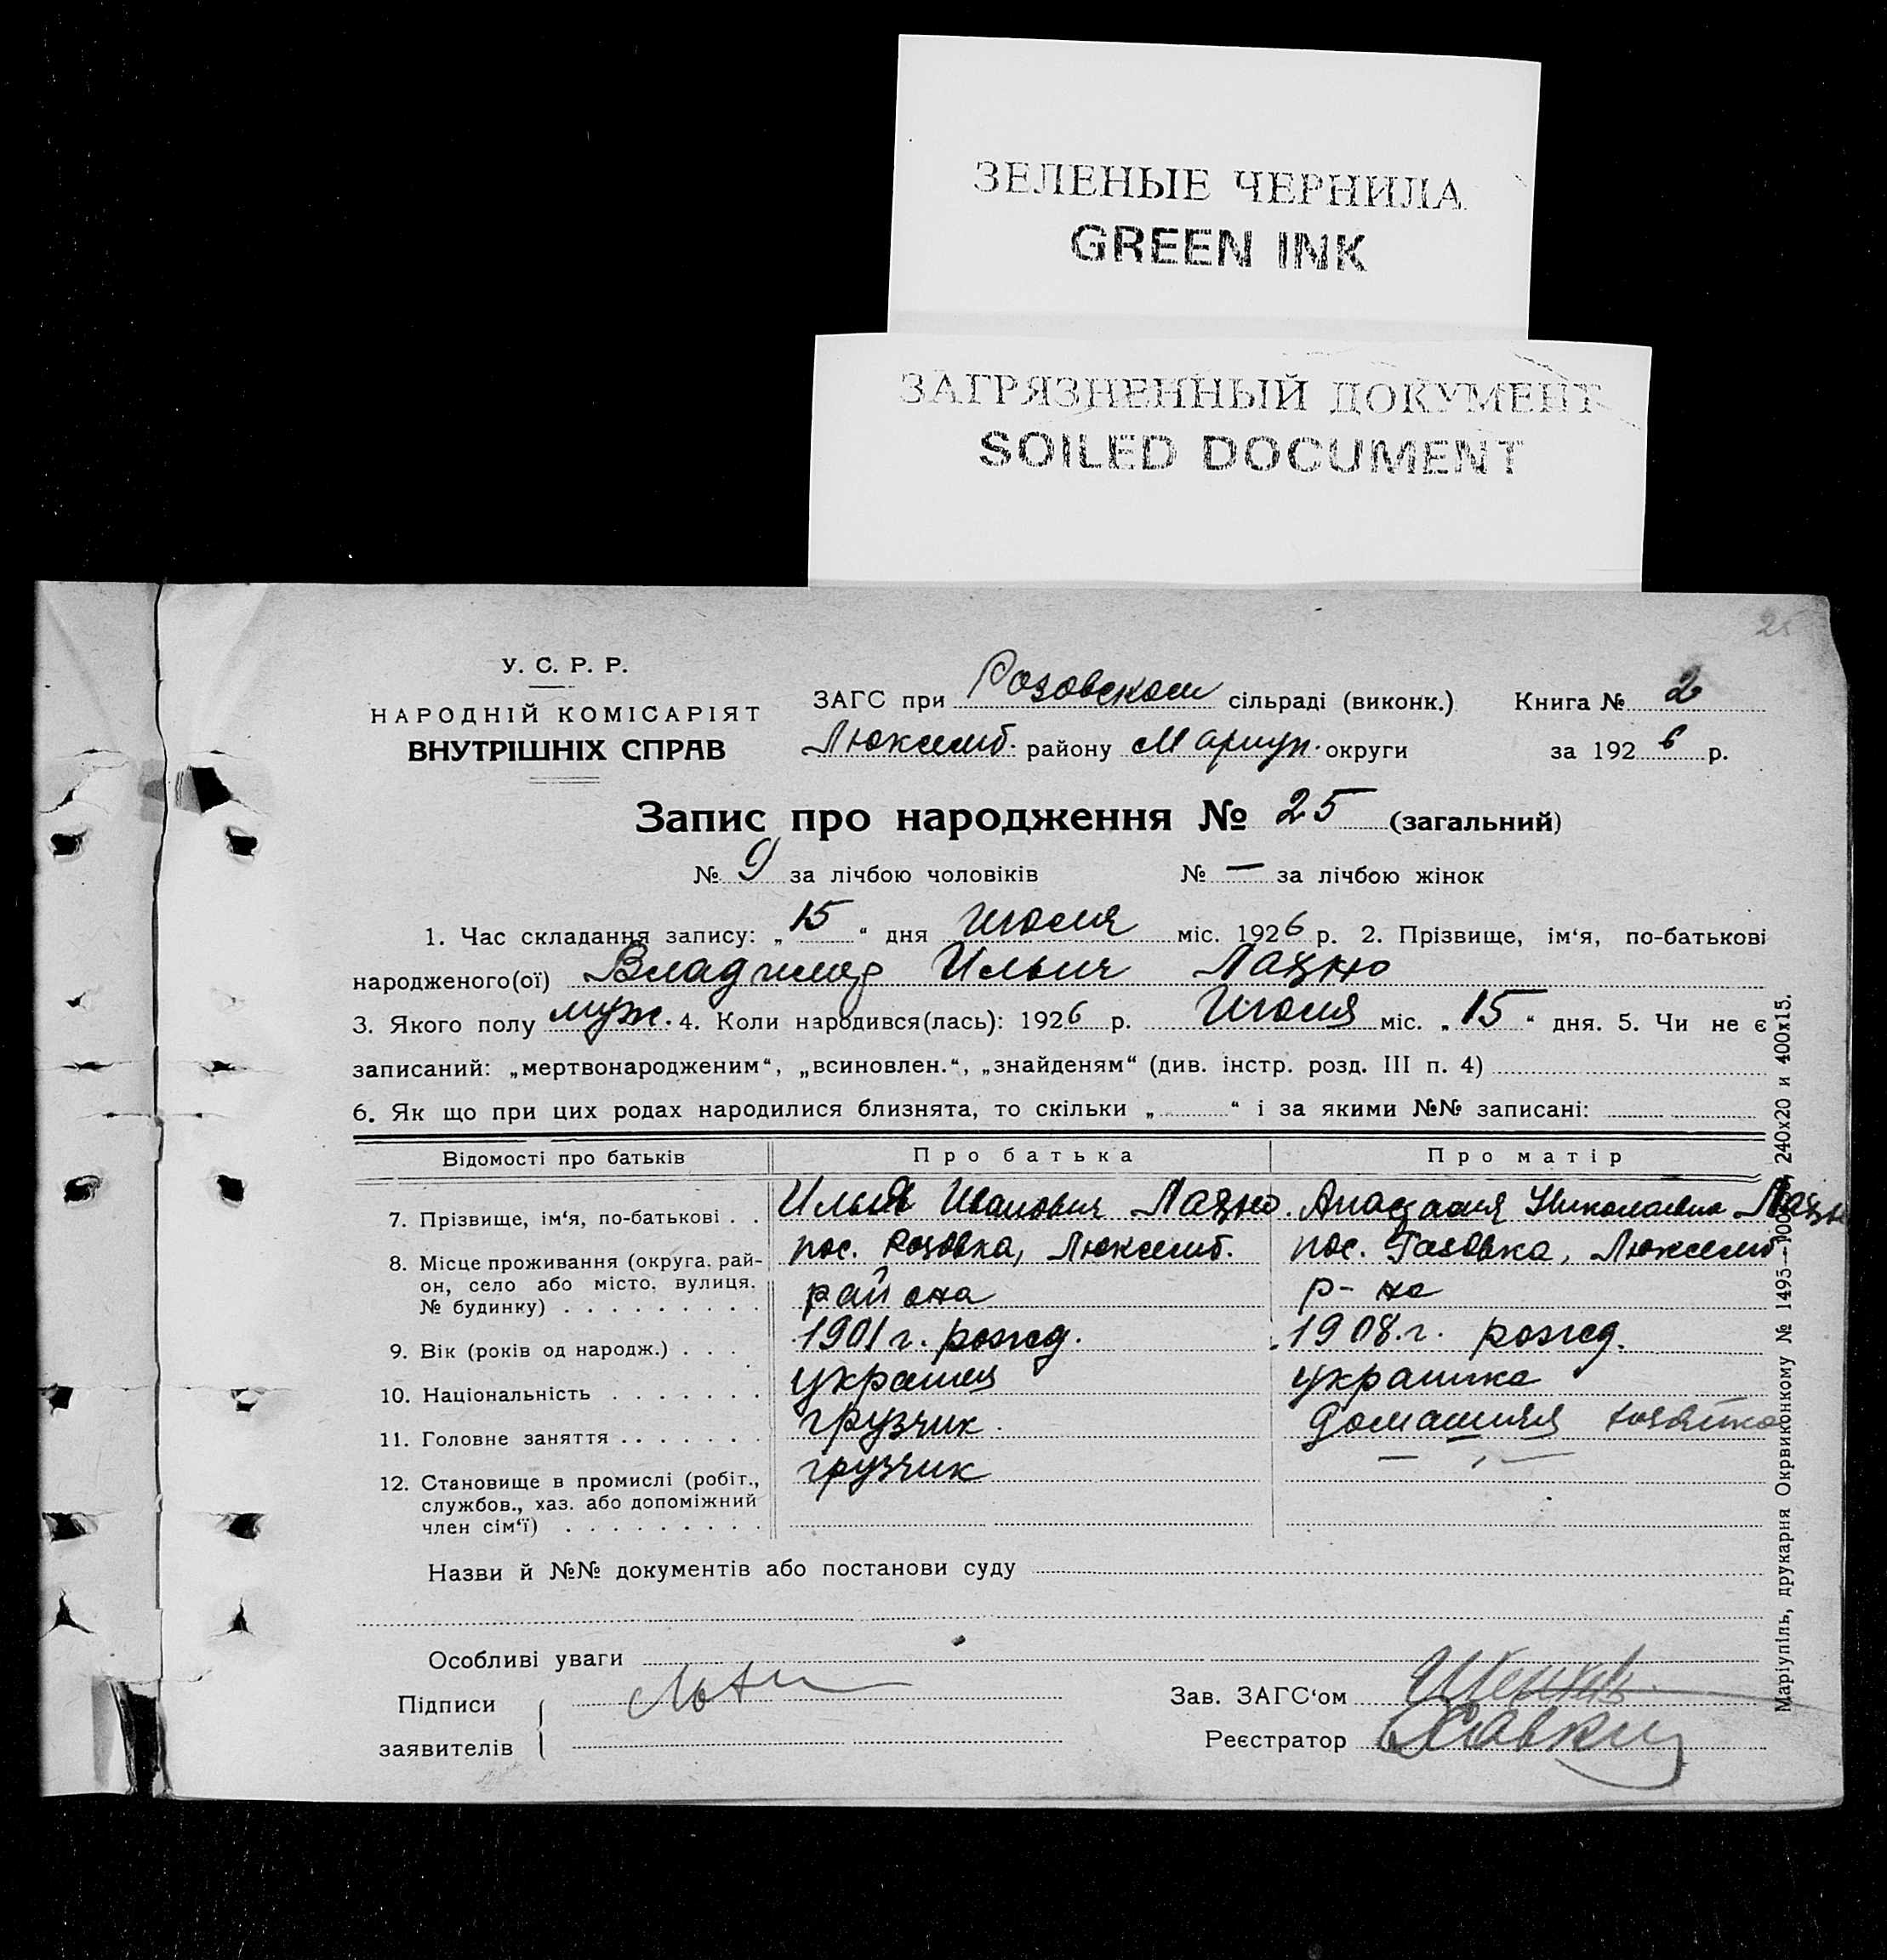 ЗЕЛЕНЫЕ ЧЕРНИЛА
GREEN INK
ЗАГРЯЗНЕННЫЙ ДОКУМЕНТ
SOILED DOCUMENT
25
У. С. Р. Р.
НАРОДНІЙ КОМІСАРІЯТ
ВНУТРІШНІХ СПРАВ
ЗАГС при Розовском сільраді (виконк.) Книга № 2
Люксемб. району Мариуп. округи за 1926 р.
Запис про народження № 25 (загальний)
№ 9 за лічбою чоловіків № — за лічбою жінок
1. Час складання запису: „15“ дня Июля міс. 1926 р. 2. Прізвище, ім‘я, по-батькові
народженого(ої) Владимир Ильич Лацко
3. Якого полу муж. 4. Коли народився(лась): 1926 р. Июля міс. „15“ дня. 5. Чи не є
записаний: „мертвонародженим“, „всиновлен.“, „знайденям“ (див. інстр. розд. III п. 4)
6. Як що при цих родах народилися близнята, то скільки „ “ і за якими №№ записані:
Відомості про батьків Про батька Про матір
7. Прізвище, ім‘я, по-батькові . . Илья Иванович Лацко. Анастасия Николаевна
8. Місце проживання (округа, рай- пос. Розовка, Люксемб. пос. Розовка, Люксемб.
он, село або місто, вулиця, района р-на
№ будинку) . . . . . . . . .
9. Вік (років од народж.) . . . 1901 г. рожд. 1908 г. рожд.
10. Національність . . . . . . . украинец украинка
11. Головне заняття . . . . . . . грузчик. домашняя хозяйка
12. Становище в промислі (робіт., грузчик — „ —
службов., хаз. або допоміжний
член сім‘ї) . . . . . . . . .
Назви й №№ документів або постанови суду
Особливі уваги
Підписи
заявителів
Зав. ЗАГС‘ом
Реєстратор
Маріупіль, друкарня Окрвиконкому № 1495— 240х20 и 400х15.